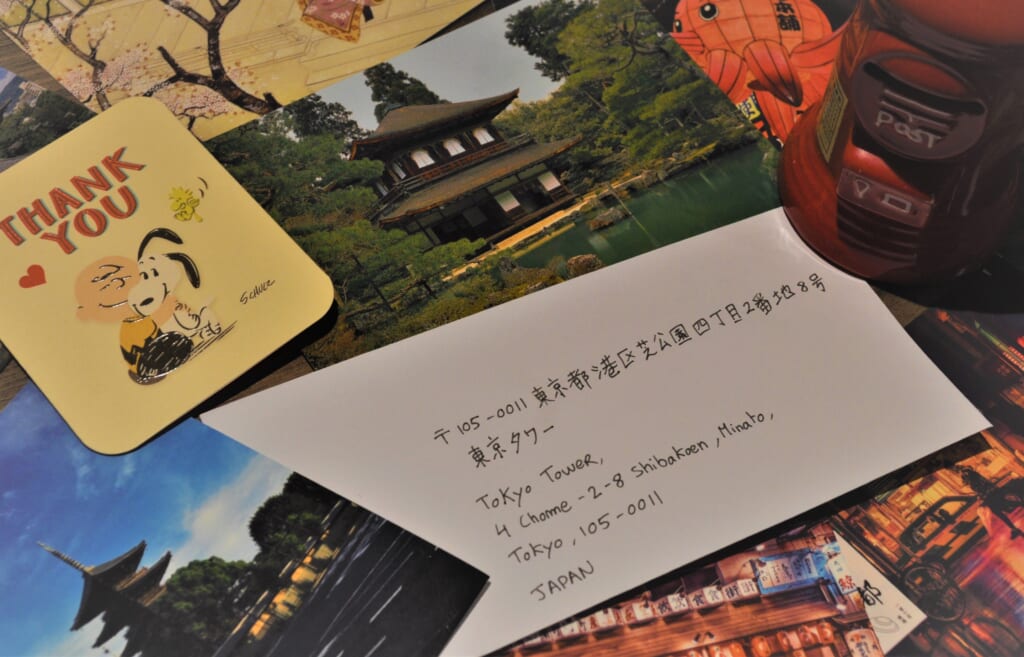 本舗
POST
THANK
YOU
SCHULZ
〒105-0011 東京都港区芝公園四丁目2番地8号
東京タワー
Tokyo Tower,
4 Chome-2-8 Shibakoen, Minato,
Tokyo, 105-0011
JAPAN
都